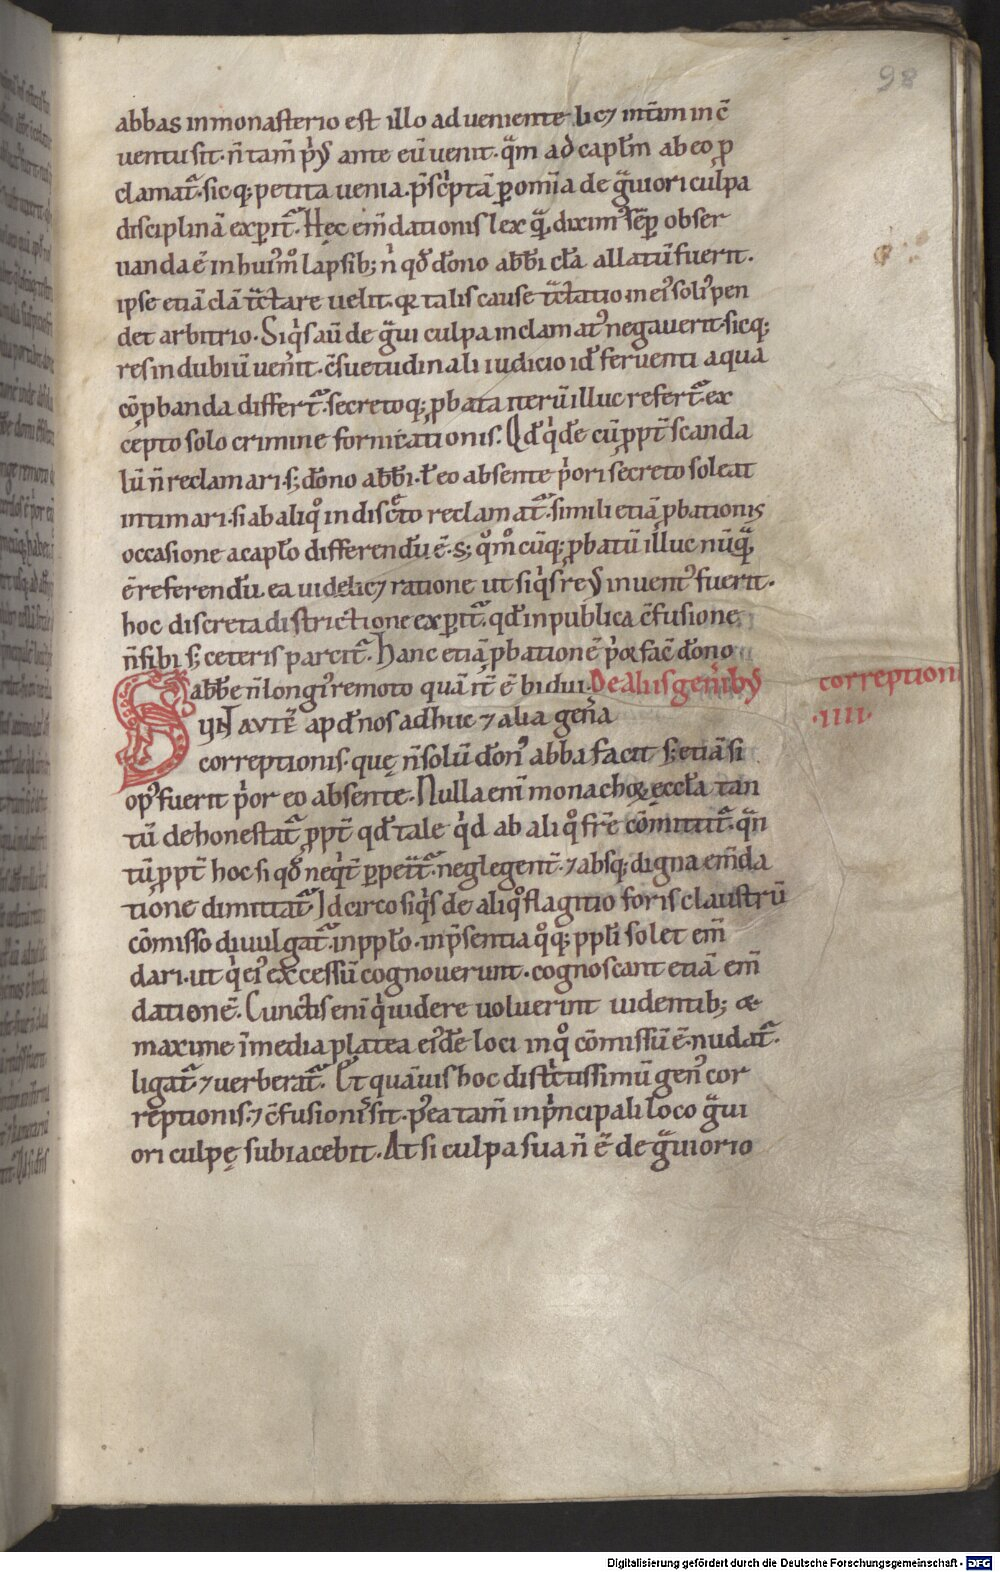 98
abbas in monasterio est illo ad veniente licꝫ intĩm in c̃
ventu sit · ñ tam̃ pͥꝰ ante eũ venit · qͣm ad capl̃m ab eo ꝓ
clamatᷓ · sicqꝫ petita venia · p̃scͥptã ꝑ om̃ia de gͣviori culpa
disciplinã exꝑitᷓ · Hęc em̃dationis lex qͣ diximꝰ sẽꝑ obser
vanda ẽ in huiꝰmͦ lapsibꝫ nͥ qd̃ dõno abb̃i clã allatũ fuerit ·
ipse etiã clã tͣctare velit · qꝛ talis cause tͣctatio in eiꝰ soliꝰ pen
det arbitrio · Siqͥs aũ de gͣui culpa inclamatꝰ negaverit · sicqꝫ
res in dubiũ ven̾it · c̃suetudinali iudicio id ̃ ferventi aqua
cõꝓbanda differtᷓ · secretoqꝫ ꝓbata iterũ illuc refertᷓ · ex
cepto solo crimine fornicationis · Qd̃ qͥdẽ cũ ꝓpt̃ scanda
lũ ñ reclamari sꝫ dõno abb̃i · ł eo absente pͥori secreto soleat
intimari · si ab aliqͦ indiscͤto reclamatᷓ · simili etiã ꝓbationis
occasione a capl̃o differendũ ẽ · sꝫ qͦmͦcũqꝫ ꝓbatũ illuc nũqͣ
ẽ referendũ · ea videlicꝫ ratione ut siqͥs reꝰ inventꝰ fuerit ·
hoc discreta districtione exꝑitᷓ · qd̃ in publica c̃fusione
ñ sibi sꝫ ceteris parcitᷓ · Hanc etiã ꝓbationẽ pͥoꝝ facẽ dõno
abb̃e ñ longiꝰ remoto quã it̃ ẽ bidui · De aliis gen̾ibꝰ correption
SVNT AVTẼ apd̃ nos adhuc ⁊ alia gen̾a · IIII ·
correptionis · quę ñ solũ donꝰ abba facit sꝫ etiã si
opꝰ fuerit pͥor eo absente · Nulla enĩ monachoꝝ eccl̃a tan
tũ dehonestatᷓ ꝓpt̃ qd̃ tale qͥd ab aliqͦ fr̃e cõmittitᷓ · qͣn
tũ ꝓpt̃ hoc si qd̃ neqͥt̃ ꝑpet̃tᷓ · neglegent̃ ⁊ absqꝫ digna em̃da
tione dimittatᷓ Idcirco siqͥs de aliqͦ flagitio foris claustrũ
cõmisso divulgatᷓ in ppl̃o · in p̃sentia qͦqꝫ ppl̃i solet em̃
dari · ut qͥ eiꝰ excessũ cognoverunt · cognoscant etiã em̃
dationẽ · Cunctis enĩ qͥ videre voluerint videntibꝫ &
maxime ĩ media platea eiꝰdẽ loci in qͦ cõmissũ ẽ · nudatᷓ ·
ligatᷓ · ⁊ verberatᷓ · Et quãvis hoc distͥctissimũ genꝰ cor
reptionis · ⁊ c̃fusionis sit · p̾ea tam̃ in pͥncipali loco gͣui
ori culpę subiacebit · At si culpa sua ñ ẽ de gͣviorio
Digitalisierung gefördert durch die Deutsche Forschungsgemeinschaft - DFG